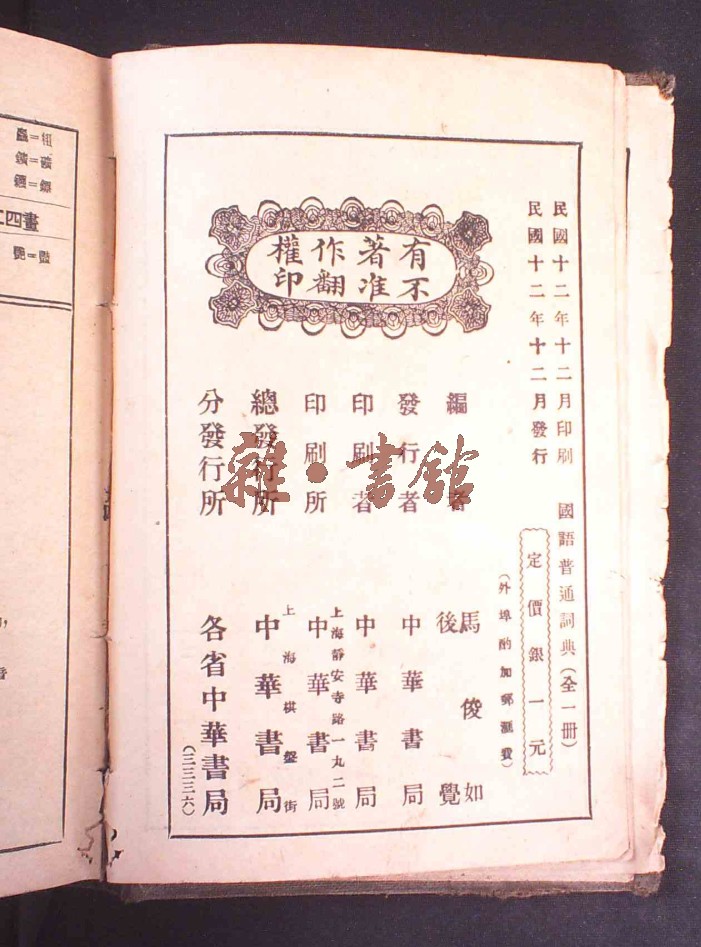 民國十二年十二月印刷
民國十二年十二月發行
國語普通詞典(全一冊)
定價銀一元
(外埠酌加郵滙費)
有著作權
不准翻印
編者 馬俊如 後覺
發行者 中華書局
印刷者 中華書局
印刷所 上海靜安寺路一九二號 中華書局
總發行所 上海棋盤街 中華書局
分發行所 各省中華書局
(三三三六)
雜·書館
四畫